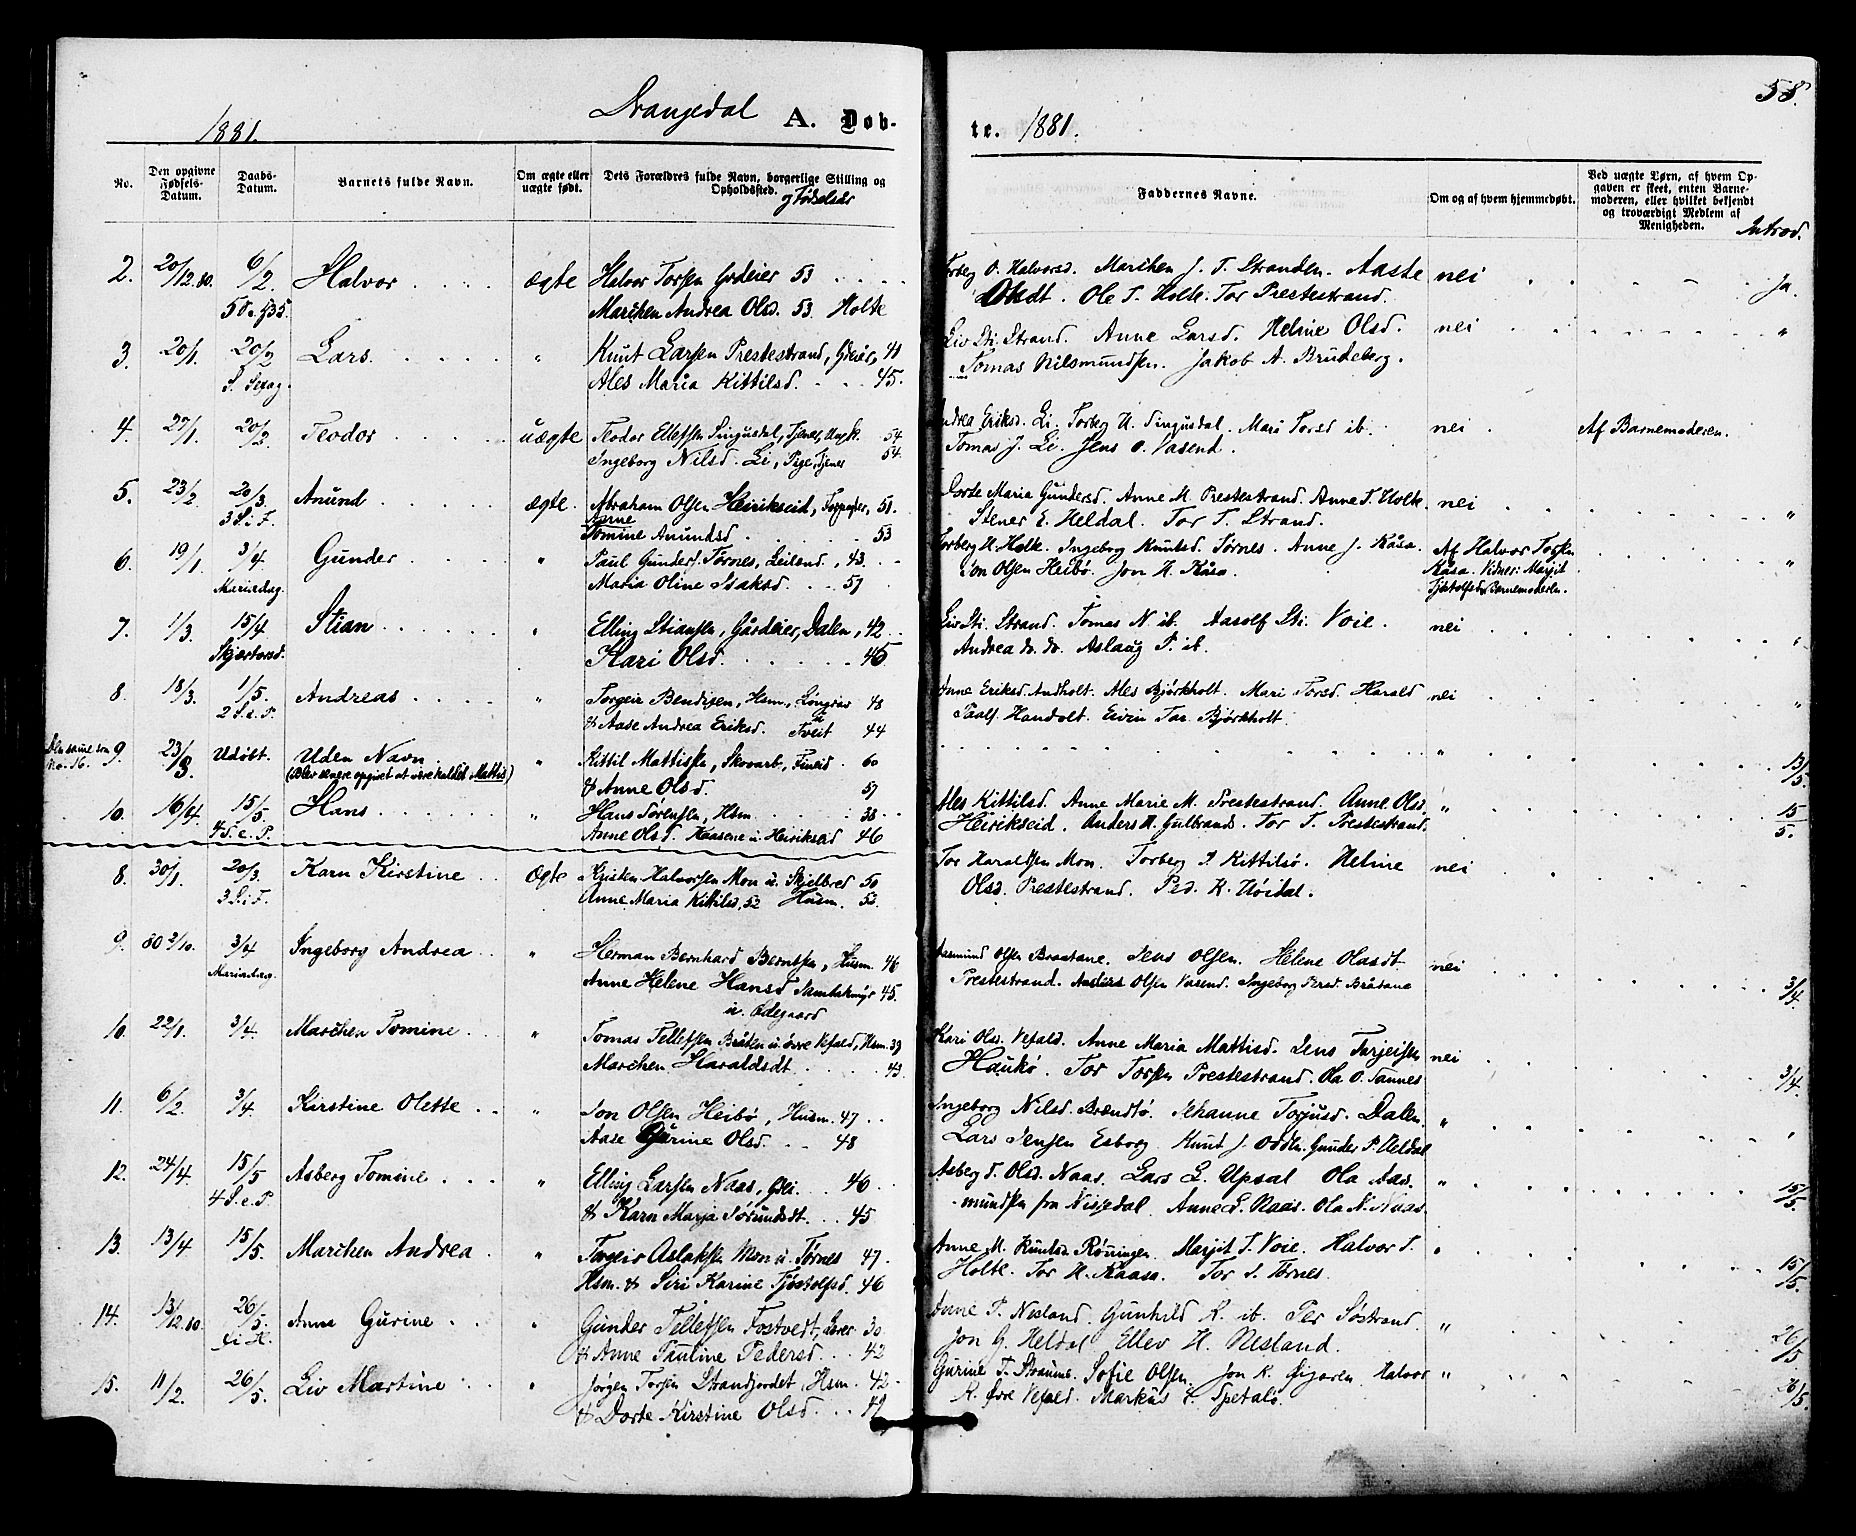 Drangedal A. Døb-
1881.
No.
Den opgivne Fødsels-Datum.
Daabs-Datum.
Barnets fulde Navn.
Om ægte eller uægte født.
Dets Forældres fulde Navn, borgerlige Stilling og Opholdssted.
og Fødselsår
2. 20/12.80. 6/2. Halvor ægte Halvor Torsen Grdeier 53
Marchen Andrea Olsd. 53 Holte
3. 20/1. 20/2 Lars. " Knut Larsen Prestestrand, Grdeier,
S. Sexag. Ales Maria Kittilsd. 45.
4. 27/1. 20/2 Teodor uægte Teodor Ellefsen Singusdal, Tjener, Ungk. 54
Ingeborg Nilsd. Li, Pige, Tjener 54.
5. 23/2 20/3. Anund ægte. Abraham Olsen Heirikseid, 51.
3 S. i F. Anne Tomine Anundsd. 53
6. 19/1. 3/4 Gunder " Paul Gunders. Tørnes, Leilend., 43.
Mariadag Maria Oline Isaksd. 57
7. 1/3. 15/4 Stian " Elling Stiansen, Gårdeier, Dalen, 42
Skjærtorsd. Kari Olsd. 45
8. 18/3. 1/5. Andreas " Torgeir Bendixen, Hsm., 48
2 S. e. P. & Aase Andrea Eriksd. Tveit 44
Den samme som No. 16. 9. 23/3. Udøbt. Uden Navn. " Kittil Mattisen, Skovarb., Fineid 60
(Blev senere opgivet at være kaldet Mattis) & Anne Olsd. 57
10. 16/4. 15/5. Hans " Hans Sørensen, Hsm. 38
4 S. e. P. Anne Olsd. Kaasene u. Heirikseid 46
8. 30/1. 20/3. Karn Kirstine ægte Kristen Halvorsen Mon u. Skjelbred 50
3 S. i F. Anne Maria Kittilsd. 52 Husm. 53.
9. 80 2/10. 3/4 Ingeborg Andrea " Herman Bernhard Berntsen, Husm. 46
Mariadag Anne Helene Hansd 45.
u. Ødegaard
10. 22/1. 3/4. Marchen Tomine " Tomas Tellefsen Bråten u. övre Vefald, Hsm. 39
Marchen Haraldsdt 43.
11. 6/2. 3/4. Kirstine Olette " Jon Olsen Heibø, Husm. 47
Aase Gurine Olsd. 48
12. 24/4. 15/5 Asberg Tomine " Elling Larsen Naas, 46
4 S. e. P. & Karn Marja Sørundsdt. 45
13. 13/4 15/5. Marchen Andrea " Torgeir Aslaksen Mon u. Tørnes 47.
Hsm. & Siri Karine Tjøstolfsd. 46
14. 13/12.80. 26/5. Anna Gurine " Gunder Tellefsen Tostvedt, 30
& Anne Pauline Pedersd. 42
15. 11/2. 26/5. Liv Martine " Jørgen Torsen Strandjordet, Hsm. 42
& Dorte Kirstine Olsd.
58.
te. 1881.
Faddernes Navne.
Om og af hvem hjemmedøbt.
Ved uægte Børn, af hvem Opgaven er skeet, enten Barnemoderen, eller hvilket bekjendt og troværdigt Medlem af Menigheden.
Introd.
Torberg O. Halvorsd. Marchen J. T. Stranden. Aaste nei Ja.
Ole T. Holte. Tor Prestestrand.
Liv Sti. Strand. Anne Larsd. Heline Olsd. nei "
Tomas Nilsmundsen. Jakob A. Brudeberg.
Andrea Eriksd. Li. Torberg H. Singusdal. Mari Torsd ib. nei Af Barnemoderen.
Tomas J. Li. Jens O. Vasend.
Dorte Maria Gundersd. Anne M. Prestestrand. Anne T. Holte. nei "
Stener E. Heldal. Tor T. Strand.
Torberg H. Holte. Ingeborg Knutsd. Tørnes. Anne J. Kåsa. Af Halvor Torsen
Jon Olsen Heibø. Jon H. Kåsa. Kåsa. Vidner: Margit "
Barnemoderen.
Liv Sti. Strand. Tomas N. ib. Aasolf Sti. Voie. nei "
Andrea do. do. Aslaug P. ib.
Anne Eriksd. Andholt. Ales Bjørkholt. Mari Torsd. Harald nei "
Eivin Tor. Bjørkholt
" 13/5.
Ales Kittilsd. Anne Marie M. Prestestrand. Anne Olsd. " 15/5.
Heirikseid. Anders H. Gulbrands. Tor T. Prestestrand.
Tor Haraldsen Mon. Torberg S Kittilsø. Heline nei
Olsd. Prestestrand. Ped. K. Høidal.
Aasmund Olsen Braatane. Jens Olsen. Helene Olasdt nei
Prestestrand. Anders Olsen Vasend. Ingeborg Persd. Bråtane 3/4.
Kari Olsd. Vefald. Anne Maria Mattisd. Jens Tarjeisen nei
Haukø. Tor Torsen Prestestrand. Ola O. Tannes 3/4.
Ingeborg Nilsd. Brændsø. Jehanne Torjusd. Dalen. "
Lars Jensen Esborg. Knud J. Gunder P. Heldal "
Asberg T. Olsd. Naas. Lars L. Upsal. Ola Aas- "
mundsen fra Nissedal. Anne L. Naas. Ola N. Naas. 15/5.
Anne M. Knutsd. Røningen. Margit T. Voie. Halvor T. "
Holte. Tor H. Kaasa. Tor S. Tørnes. 15/5.
Anne P. Nesland. Gunhild K. ib. Per Søstrand. "
Jon G. Heldal. Ellev H. Nesland. 26/5
Gurine T. Straume. Sofie Olsen. Jon K. Halvor "
K. Øvre Vefald. Markus Spetalo. 26/5.